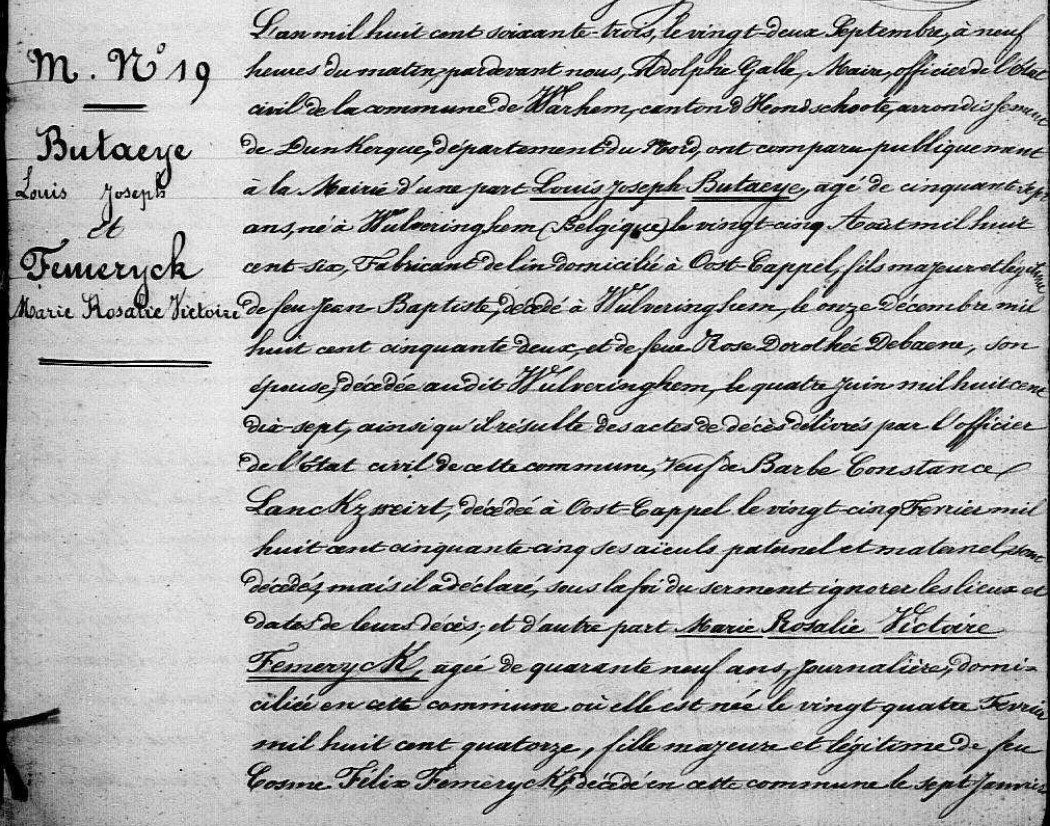 M. N° 19
Butaeye
Louis Joseph
et
Femeryck
Marie Rosalie Victoire
L'an mil huit cent soixante-trois, le vingt-deux Septembre, à neuf
heures du matin, pardevant nous, Adolphe Galle, Maire, officier de l'État
civil de la commune de Warhem, canton d'Hondschoote, arrondissement
de Dunkerque, département du Nord, ont comparu publiquement
à la Mairie d'une part Louis Joseph Butaeye, agé de cinquante sept
ans, né à Wulveringhem (Belgique) le vingt-cinq Août mil huit
cent-six, Fabricant de lin domicilié à Oost-Cappel, fils majeur et légitime
de feu Jean Baptiste, décédé à Wulveringhem, le onze Décembre mil
huit cent cinquante-deux, et de feue Rose Dorothée Debaene, son
épouse, décédée audit Wulveringhem, le quatre Juin mil huit cent
dix-sept, ainsi qu'il résulte des actes de décès délivrés par l'officier
de l'État civil de cette commune, Veuf de Barbe Constance
Lanckzweirt, décédée à Oost-Cappel le vingt-cinq Fevrier mil
huit cent cinquante-cinq ses aïeuls paternel et maternel, sont
décédés, mais il a déclaré, sous la foi du serment ignorer les lieux et
dates de leurs décès; et d'autre part Marie Rosalie Victoire
Femeryck, agée de quarante neuf ans, Journalière, domi-
ciliée en cette commune où elle est née le vingt quatre Fevrier
mil huit cent quatorze, fille majeure et légitime de feu
Cosme Félix Femeryck, décédé en cette commune le sept Janvier